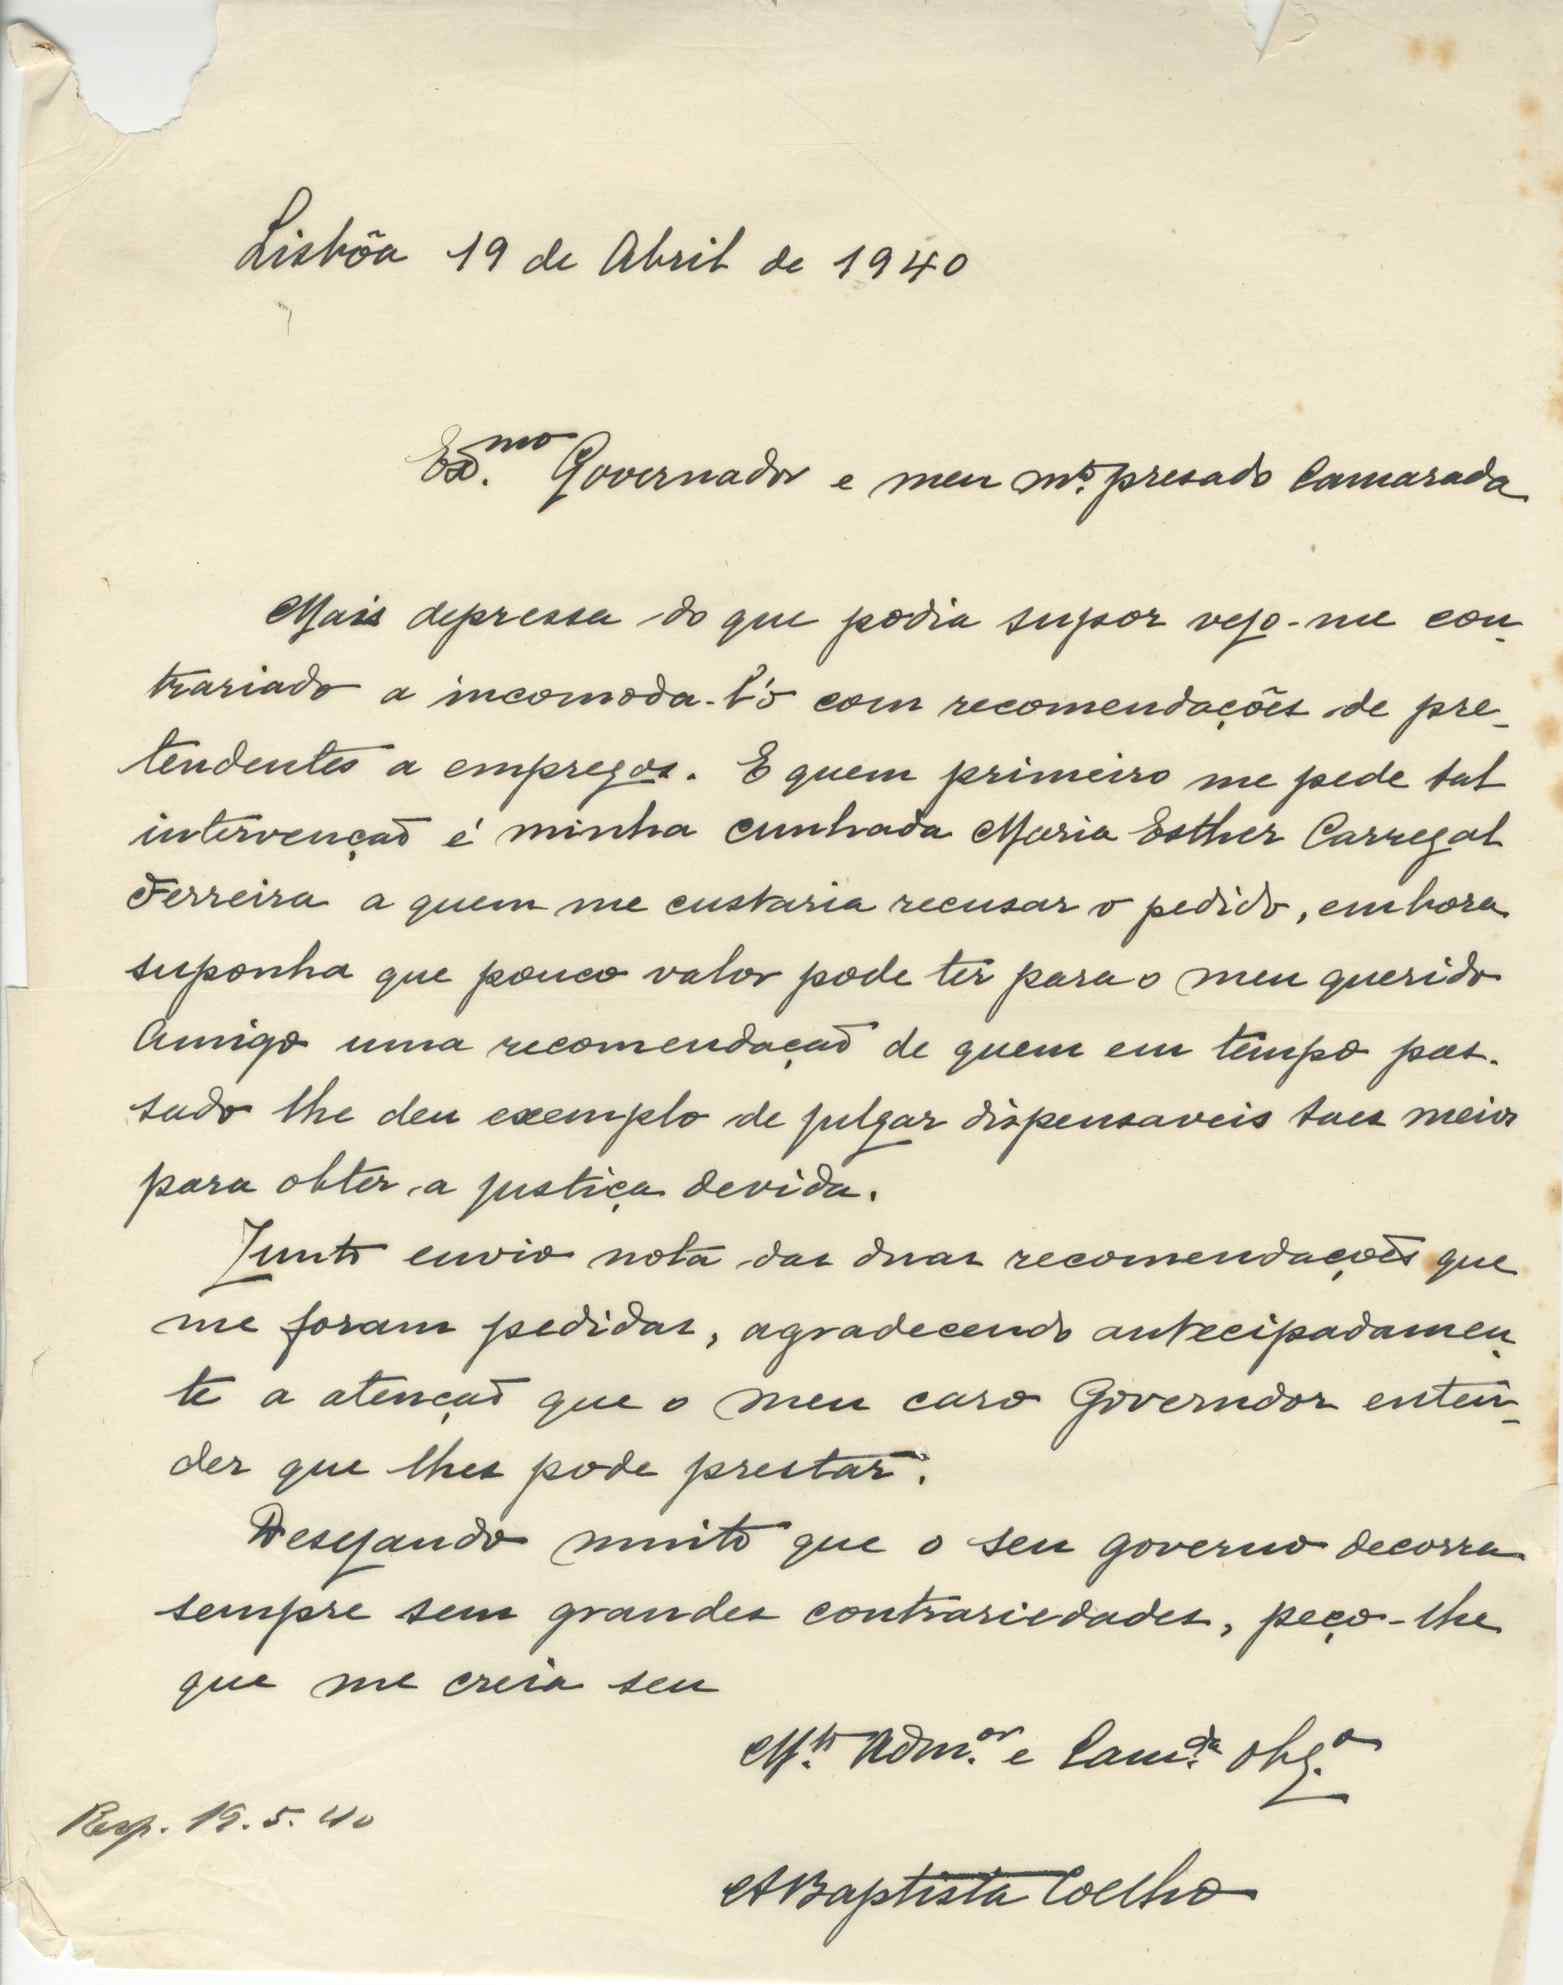 Lisbôa 19 de Abril de 1940
Ex.mo Governador e meu mto. presado Camarada
Mais depressa do que podia supor vejo-me con-
trariado a incomoda-l'o com recomendações de pre-
tendentes a empregos. E quem primeiro me pede tal
intervenção é minha cunhada Maria Esther Carregal
Ferreira a quem me custaria recusar o pedido, embora
suponha que pouco valor pode ter para o meu querido
Amigo uma recomendação de quem em tempo pas-
sado lhe deu exemplo de julgar dispensaveis taes meios
para obter a justiça devida.
Junto envio nota das duas recomendações que
me foram pedidas, agradecendo antecipadamen-
te a atenção que o meu caro Governdor enten-
der que lhes pode prestar.
Desejando muito que o seu governo decorra
sempre sem grandes contrariedades, peço-lhe
que me creia seu
M.to Adm.or e Cam.da obg.o
Resp. 19.5.40
A Baptista Coelho